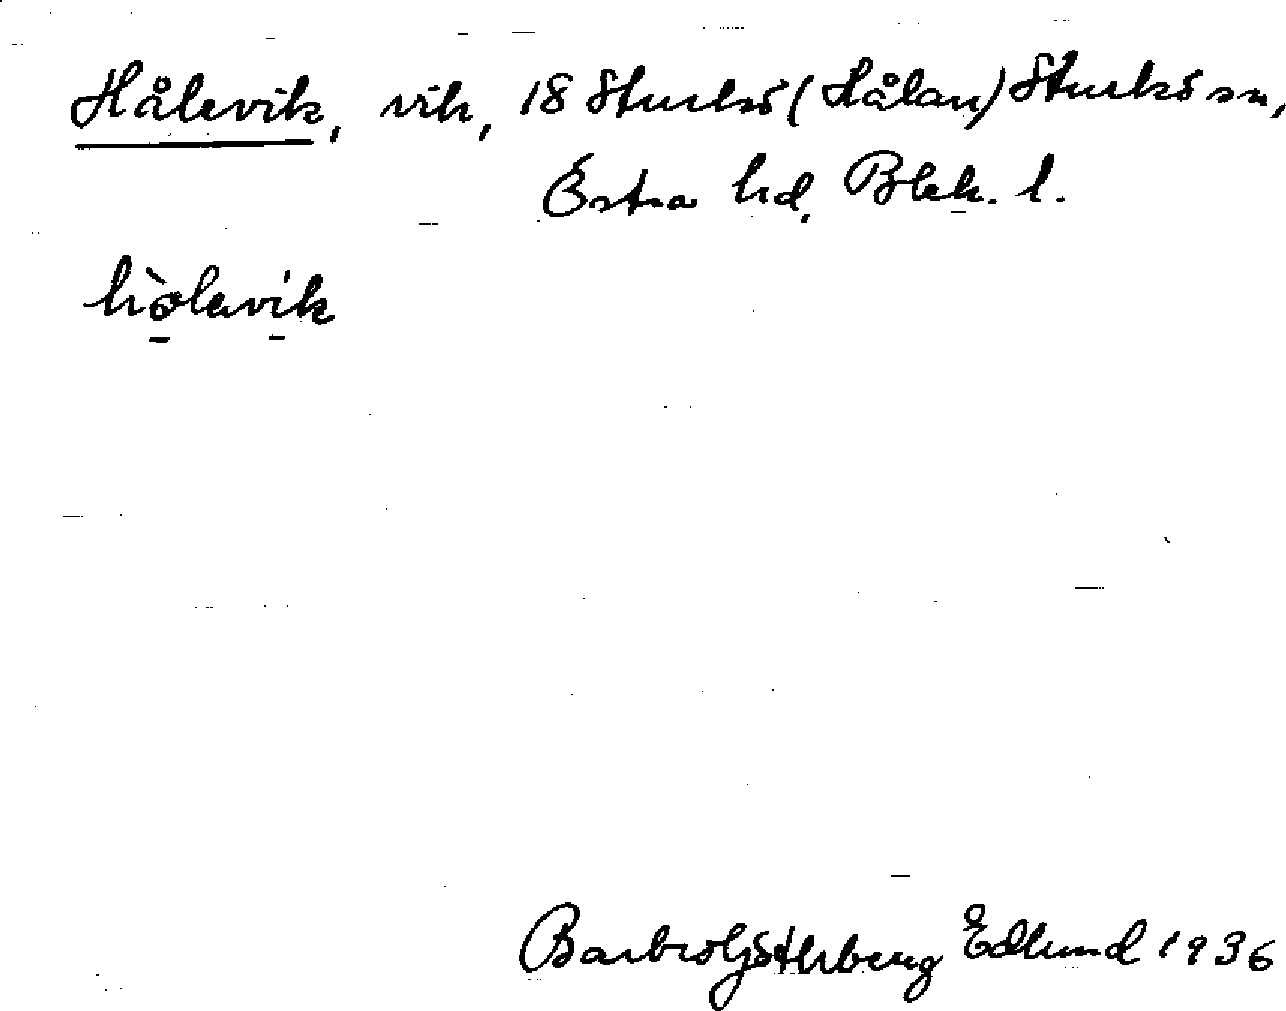 Hålevik, vik, 18 Sturkö (Hålan) Sturkö sn,
Östra hd, Blek. l.
hòlavik
Barbro Götlberg Edlund 1936